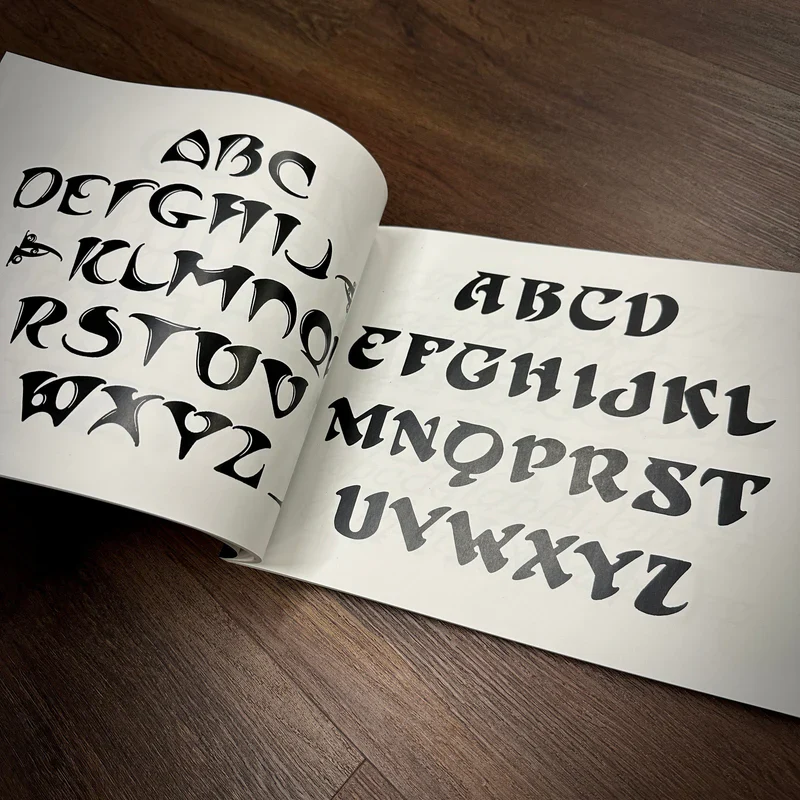 ABC
DEFGHIJ
KLMNO
RSTUV
WXYZ
ABCD
EFGHIJKL
MNQPRST
UVWXYZ